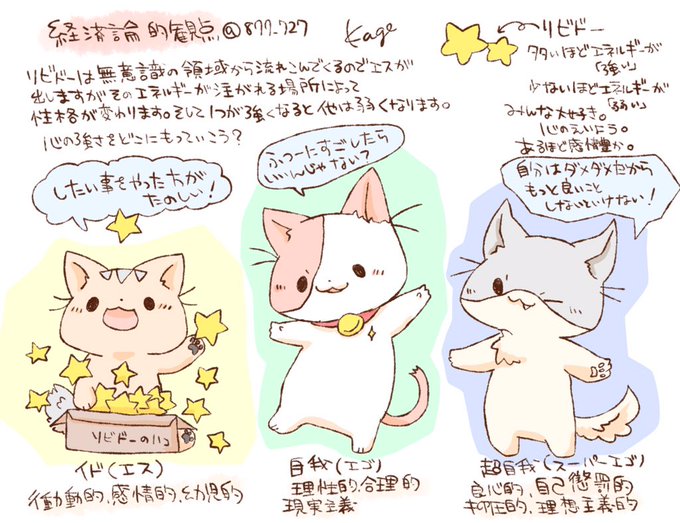 経済論的観点@877_727
Kage
リビドーは無意識の領域から流れこんでくるのでエスが
出しますがそのエネルギーが注がれる場所によって
性格が変わります。そして1つが強くなると他は弱くなります。
心の強さをどこにもっていこう?
リビドー
多いほどエネルギーが
「強い」
少ないほどエネルギーが
「弱い」
みんな大好き。
心のえいよう。
あるほど感情豊か。
したい事をやった方が
たのしい!
ふつーにすごしたら
いいんじゃない?
自分はダメダメだから
もっと良いこと
しないといけない!
リビドーのハコ
イド(エス)
衝動的、感情的、幼児的
自我(エゴ)
理性的、合理的
現実主義
超自我(スーパーエゴ)
良心的、自己懲罰的
抑圧的、理想主義的